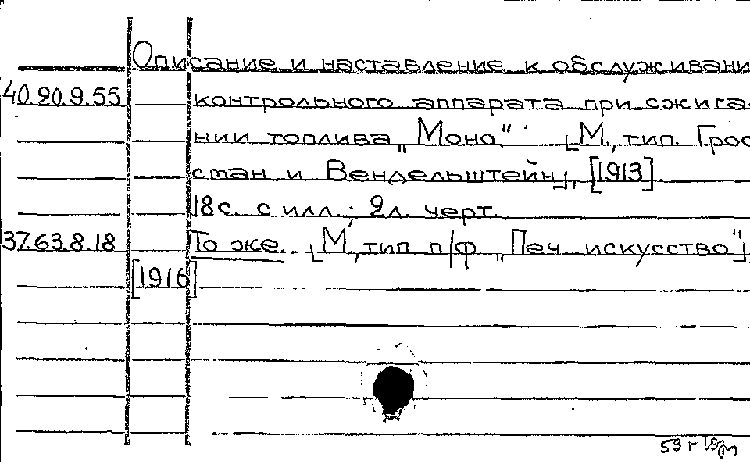 Описание и наставление к обслуживани
40.90.9.55 контрольного аппарата при сжига-
нии топлива „Моно" [М., тип. Грос
сман и Вендельштейн], [1913].
18с. с илл.; 2л. черт.
37.63.8.18 То же. [М., тип п/ф „Печ искусство"],
[1916]
59 г